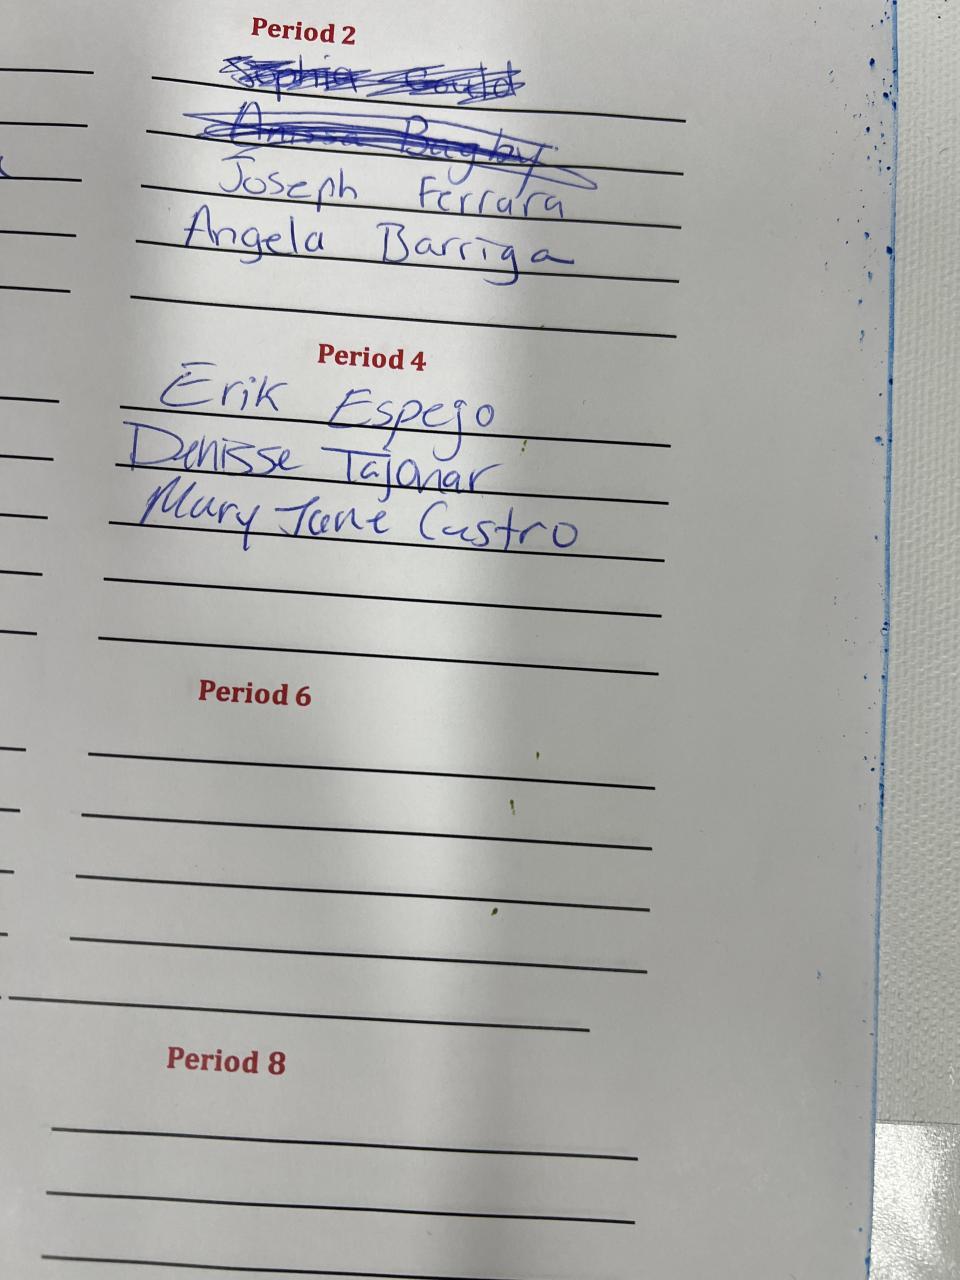 Period 2
Sophia Gould
Anissa Bagby
Joseph Ferrara
Angela Barriga
Period 4
Erik Espejo
Denisse Tajonar
Mary Jane Castro
Period 6
Period 8